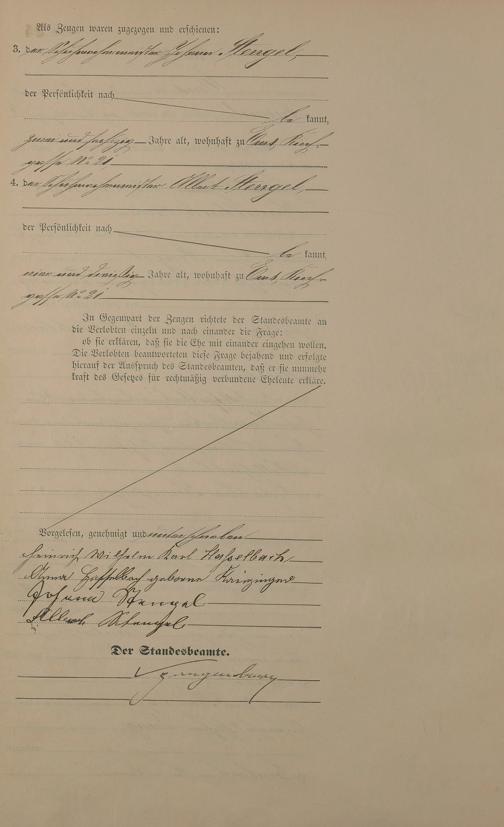 Als Zeugen waren zugezogen und erschienen:
3. der Schuhmachermeister Johann Stengel,
der Persönlichkeit nach
be kannt,
zwei und sechzig Jahre alt, wohnhaft zu Ems, Kirch-
gasse No 21
4. der Schuhmachermeister Albert Stengel,
der Persönlichkeit nach
be kannt,
ein und dreißig Jahre alt, wohnhaft zu Ems, Kirch-
gasse No 21
In Gegenwart der Zeugen richtete der Standesbeamte an
die Verlobten einzeln und nach einander die Frage:
ob sie erklären, daß sie die Ehe mit einander eingehen wollen.
Die Verlobten beantworteten diese Frage bejahend und erfolgte
hierauf der Ausspruch des Standesbeamten, daß er sie nunmehr
kraft des Gesetzes für rechtmäßig verbundene Eheleute erkläre.
Vorgelesen, genehmigt und unterschrieben
Heinrich Wilhelm Karl Hasselbach
Anna Hasselbach geborene
Johann Stengel
Albert Stengel
Der Standesbeamte.